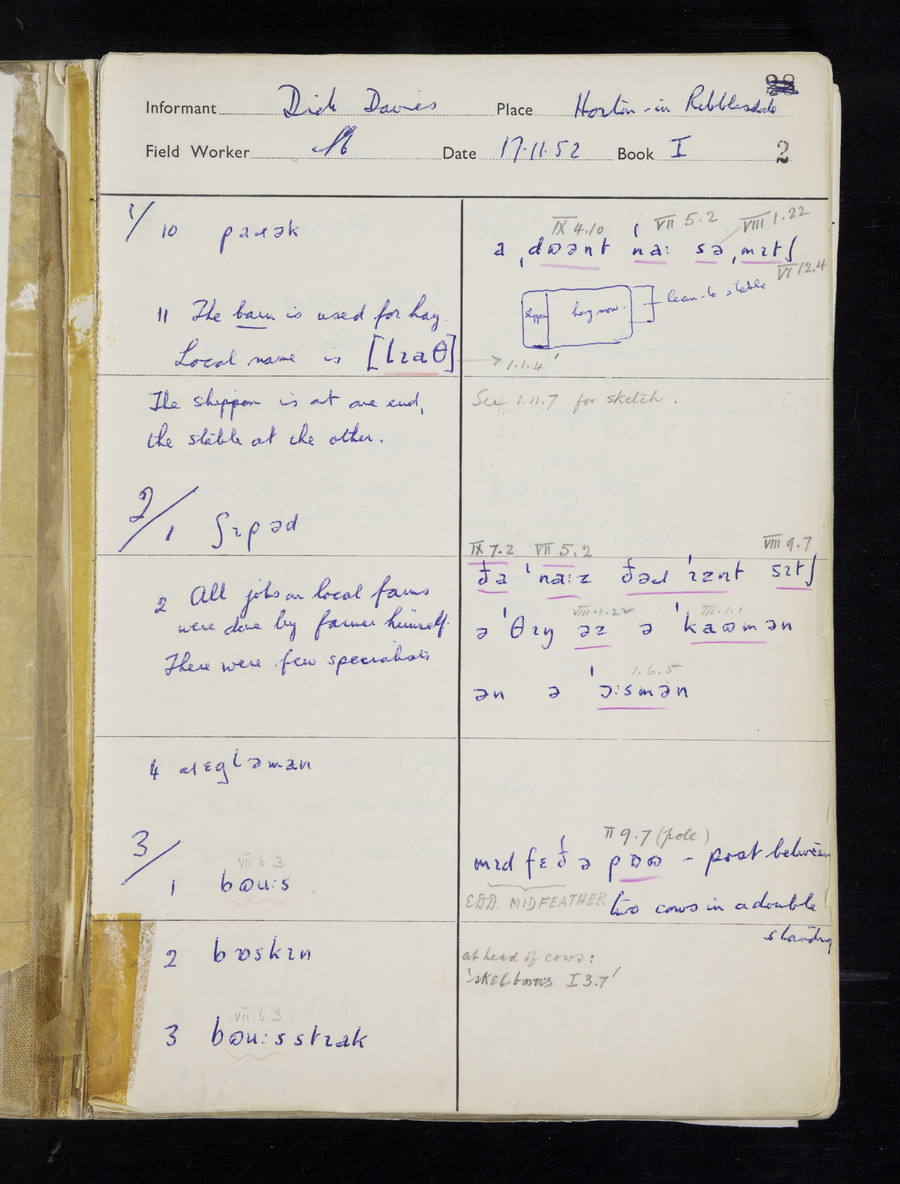 Informant Dick Davies Place Horton-in Ribblesdale
Field Worker Date 17.11.52 Book I 2
1/ 10 paɹək
11 The barn is used for hay.
Local name is [lɪaθ]
The shippon is at one end,
the stable at the other.
2/ 1 ʃɪpəd
2 All jobs on local farms
were done by farmer himself.
There were few specialists
4 ɹɛgləmən
VII 6 3
3/ 1 bɷu:s
2 bɒskɪn
VII.6.3
3 bɷu:s stɪak
IX 4.10 VII 5.2 VIII 1.22
a ˌdɷənt ˈna: sə ˌmɪtʃ
VI 12.4
Shippon hay mow. lean-to stable
→ 1.1.4
See 1.11.7 for sketch.
IX 7.2 VII 5.2 VIII 9.7
ðə ˈna:z ðəɹ ˈɪznt sɪtʃ
VIII.1.22 III.1.1
ə ˈθɪŋ əz ə ˈkaɷmən
1.6.5
ən ə ˈɔ:smən
II 9.7 (pole)
mɪdfɛðə pɒɷ - post between
EDD. MIDFEATHER two cows in a double
standing
at head of cows:
'skelbooses I 3.7'